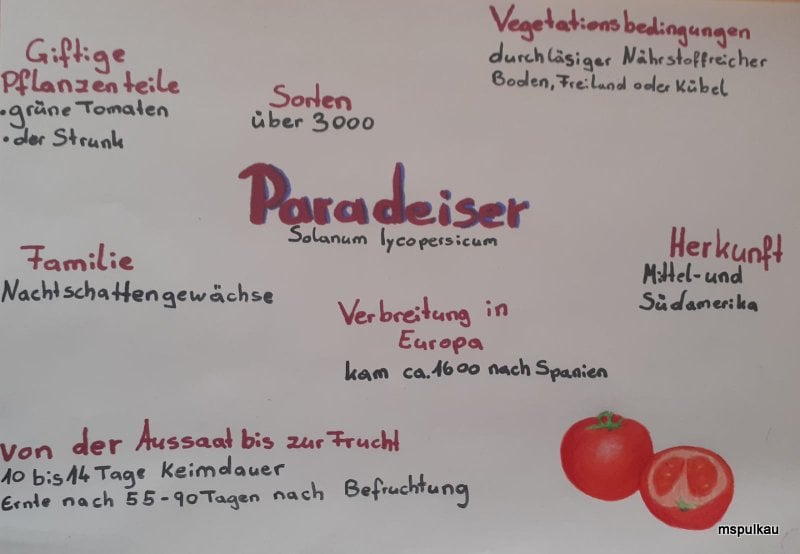 Giftige
Pflanzenteile
• grüne Tomaten
• der Strunk
Sorten
über 3000
Vegetationsbedingungen
durchläsiger Nährstoffreicher
Boden, Freiland oder Kübel
Paradeiser
Solanum lycopersicum
Familie
Nachtschattengewächse
Herkunft
Mittel- und
Südamerika
Verbreitung in
Europa
kam ca. 1600 nach Spanien
von der Aussaat bis zur Frucht
10 bis 14 Tage Keimdauer
Ernte nach 55-90 Tagen nach Befruchtung
mspulkau